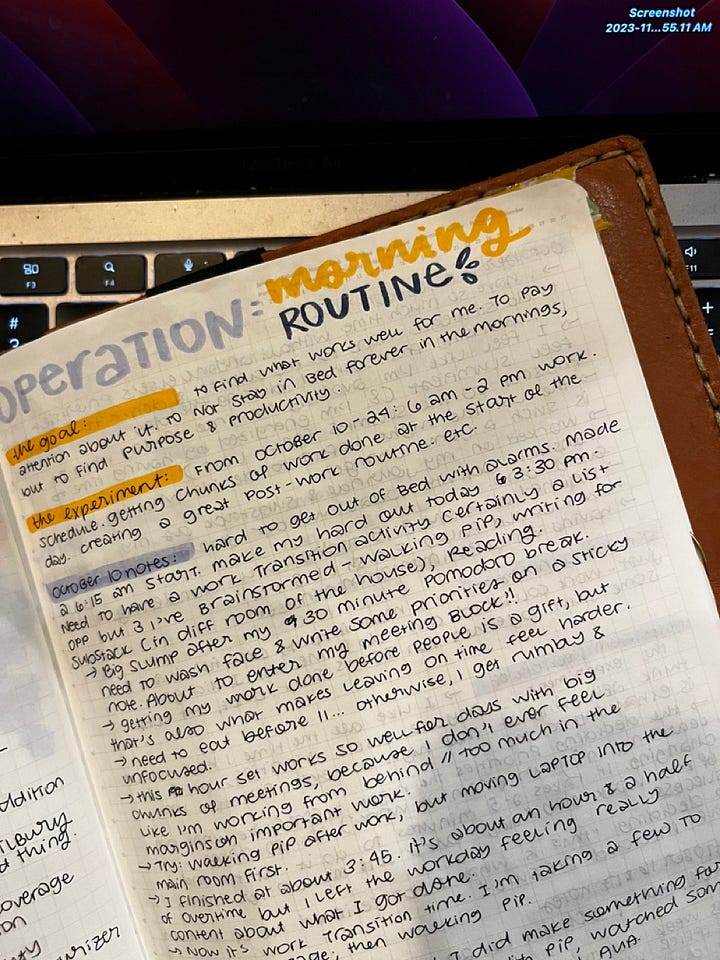 Screenshot
2023-11...55.11 AM
MacBook Air
F3
F4
F11
#
3
OPERATION: morning
ROUTINE
the goal: to find what works well for me. To pay
attention about it. To not stay in bed forever in the mornings,
but to find purpose & productivity.
the experiment: From October 10-24: 6 am - 2 pm work.
schedule. getting chunks of work done at the start of the
day. creating a great post-work routine. etc.
October 10 notes: hard to get out of bed with alarms. made
a 6:15 am start. make my hard out today @ 3:30 pm.
Need to have a work transition activity certainly a list
opp but 3 I've brainstormed - walking Pip, writing for
substack (in diff room of the house), reading.
→ Big slump after my 9:30 minute Pomodoro break.
need to wash face & write some priorities on a sticky
note. About to enter my meeting block!!
→ getting my work done before people is a gift, but
that's also what makes leaving on time feel harder.
→ need to eat before 11... otherwise, I get rumbly &
unfocused.
→ this hour set works so well for days with big
chunks of meetings, because I don't ever feel
like I'm working from behind // too much in the
margins on important work.
→ Try: walking Pip after work, but moving laptop into the
main room first.
→ I finished at about 3:45. it's about an hour & a half
of overtime but I left the workday feeling really
content about what I got done.
→ Now it's work transition time. I'm taking a few to
then walking Pip.
I did make something for
with Pip, watched som
AVA.
ddition
ilbury
d thing.
overage
on
ty
urizer